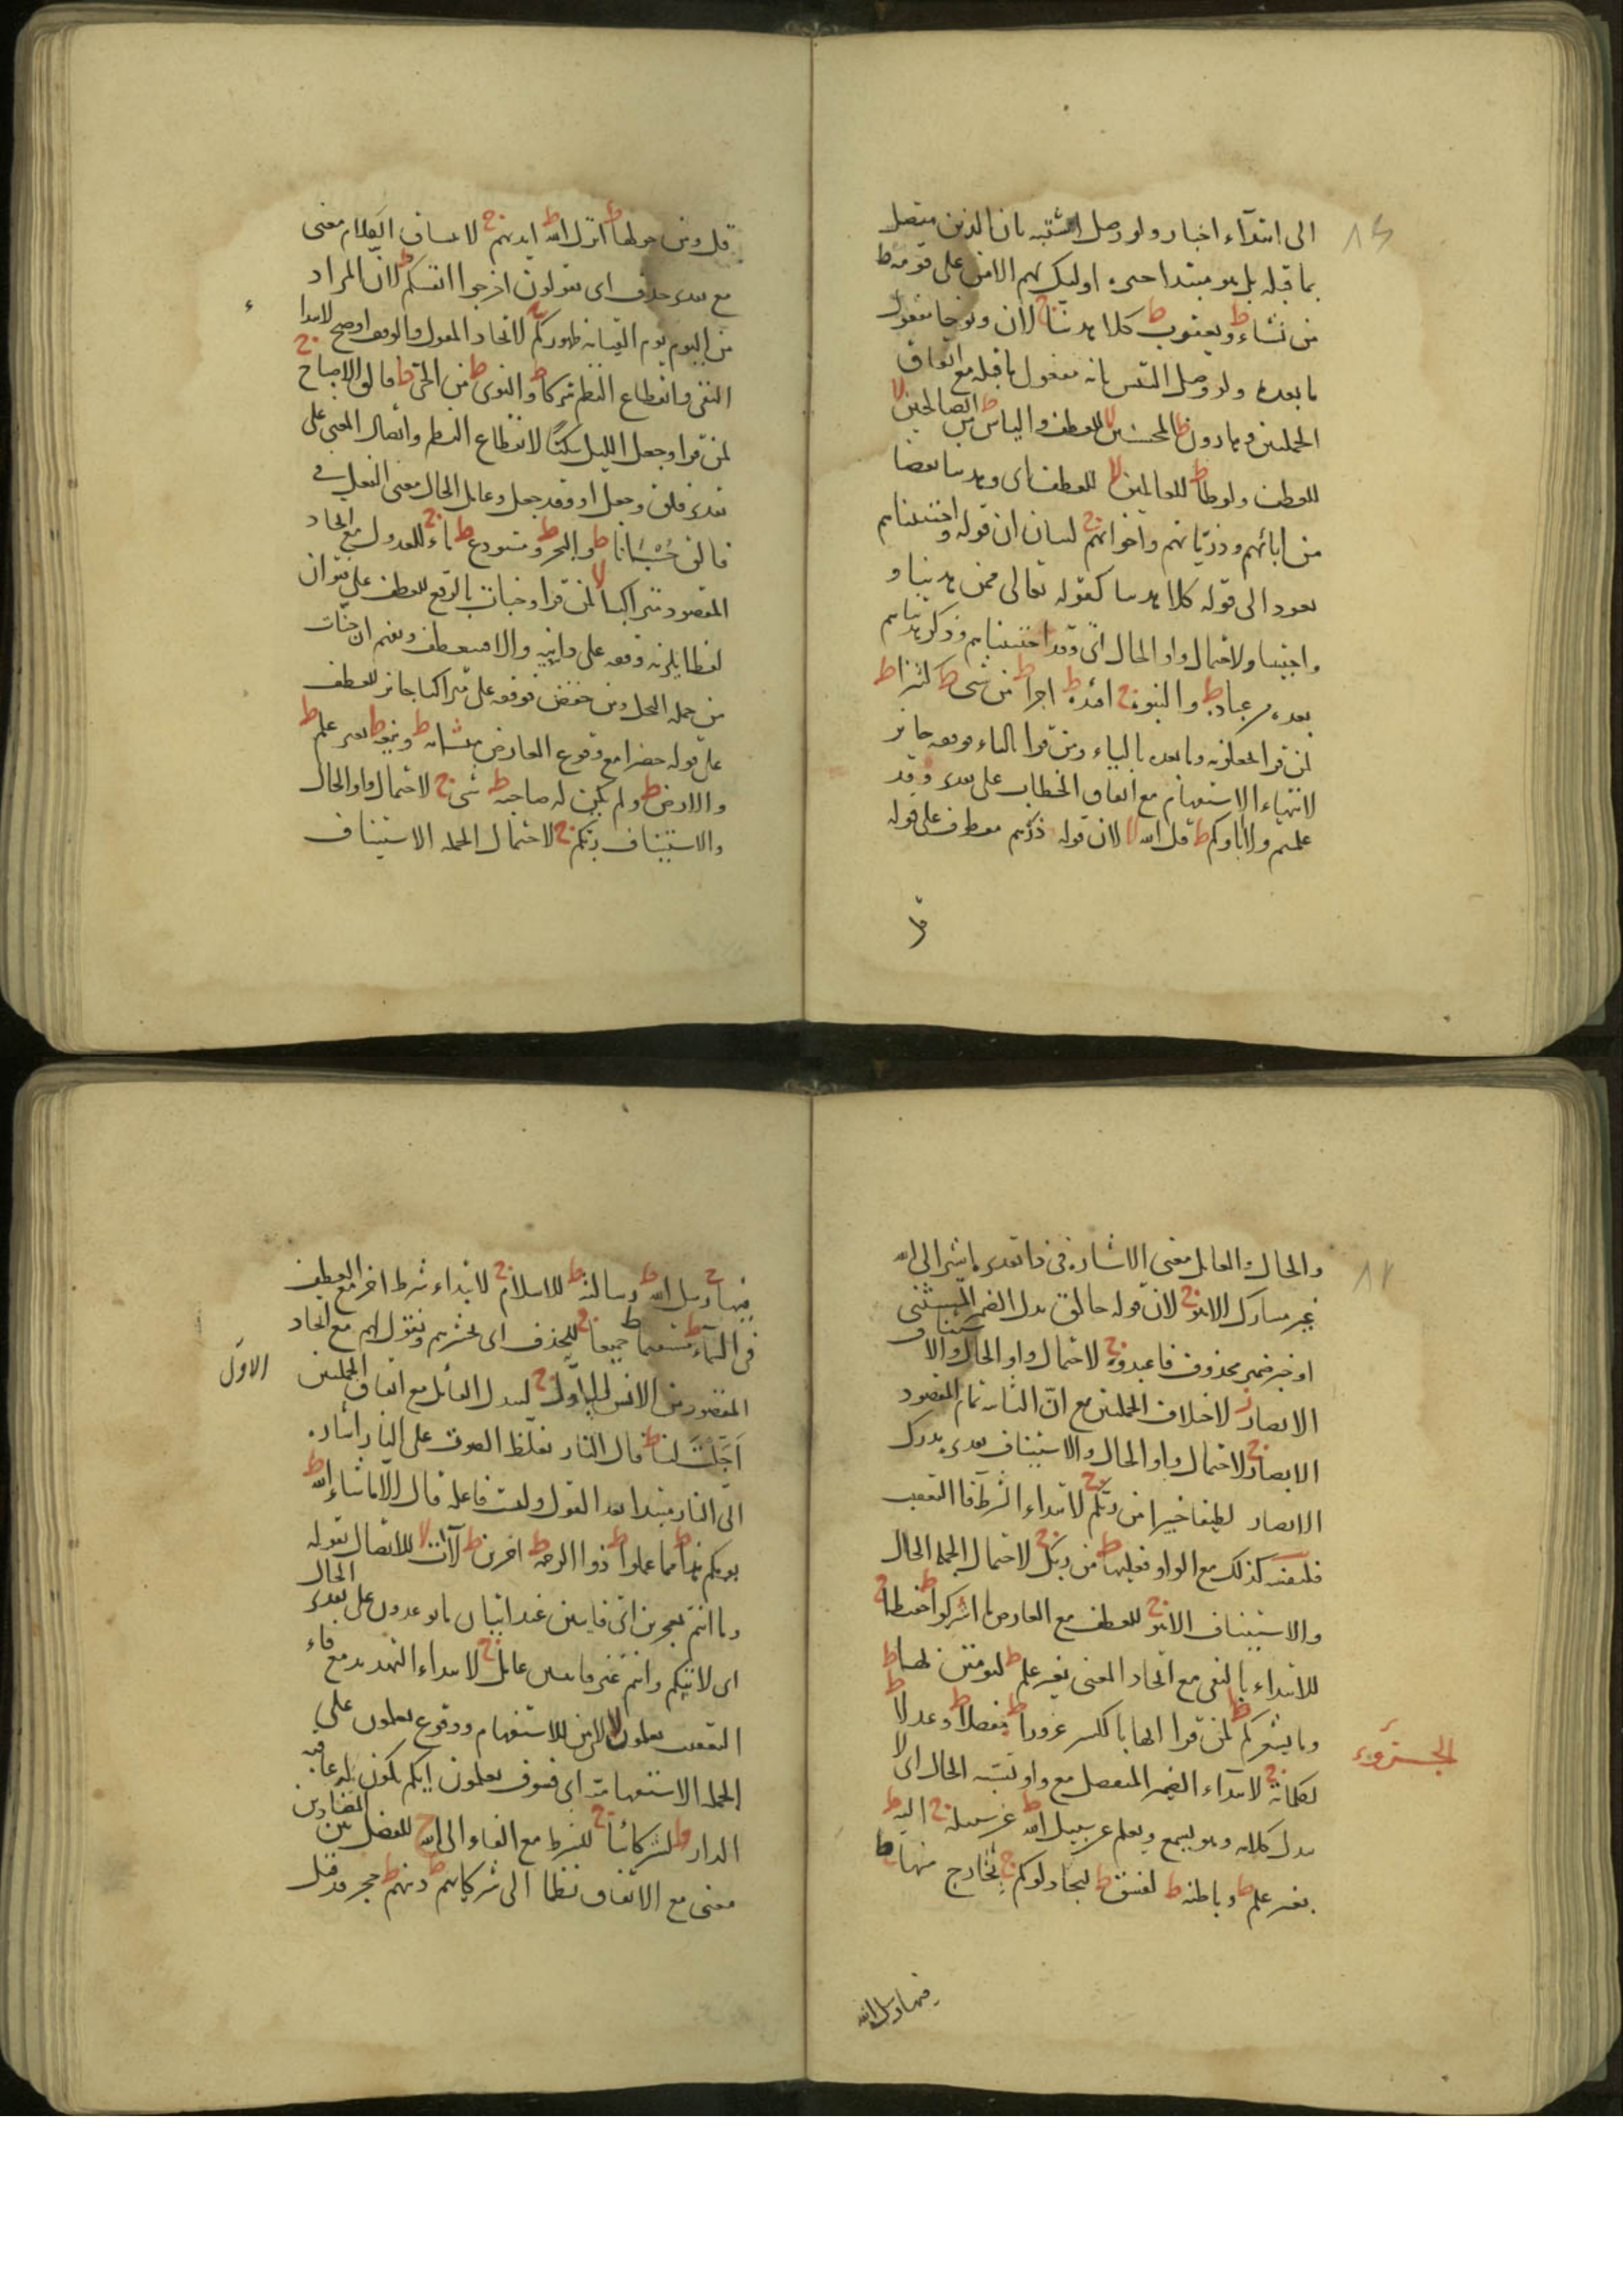 الى ابتدآء اخبار ولو وصل اشتبه بان الذين متصل
بما قبله بل هو مبتدا خبره اوليك لهم الامن على قومه ط
من نشاء ط ويعقوب ط كلا هدينا ج لان ونوحا مفعول
ما بعده ولو وصل التبس بانه مفعول ما قبله مع اتفاق
الجملتين وهارون ط المحسنين لا للعطف والياس ط من الصالحين لا
للعطف ولوطا ط للعالمين لا للعطف اى وهدينا بعضا
من ابائهم وذرياتهم واخوانهم ج لبيان ان قوله واجتبيناهم
يعود الى قوله كلا هدينا كقوله تعالى وممن هدينا و
واجتبينا ولاحتمال واو الحال اى وقد اجتبيناهم وذكر هديناهم
بعده من عباده ط والنبوة ج اقتده ط اجرا ط من شئ ط كثيرا ط
لمن قرا يجعلونه وما بعده بالياء ومن قرا بالتاء فوقفه جائز
لانتهاء الاستفهام مع اتفاق الخطاب على تقدير وقد
علمتم ولا اباؤكم ط قل الله لا لان قوله ذرهم معطوف على قوله
قل ومن حولها ط انزل الله ط ايديهم ج لاتساق الكلام معنى
مع تقدير حذف اى يقولون اخرجوا انفسكم ط لان المراد
من اليوم يوم القيامة ظهوركم ج لاتحاد المقول والوقف اوضح لابتدا
النفى وانقطاع النظم شركا ط والنوى ط من الحى ط فالق الاصباح ج
لمن قرا وجعل الليل سكنا لانقطاع النظم واتصال المعنى على
تقدير فلق وجعل او وقد جعل وعامل الحال معنى الفعل فى
فالق حسبانا ط والبحر ط ومستودع ط ماء ج للعدول مع اتحاد
المقصود متراكبا لا لمن قرا وجنات بالرفع للعطف على قنوان
لفظا يلزمه وقفه على دانية والا فيعطف ويفهم ان جنات
من جملة النخل ومن خفض فوقفه على متراكبا جائز للعطف
على قوله خضرا مع وقوع العارض متشابه ط وينعه ط بغير علم ط
والارض ط ولم يكن له صاحبة ط شئ ج لاحتمال واو الحال
والاستيناف ربكم ج لاحتمال الجملة الاستيناف
والحال والعامل معنى الاشارة فى ذا تقديره اشير الى الله
او خبر ضمير محذوف فاعبدوه ج لاحتمال واو الحال والاستيناف
الابصار ز لاختلاف الجملتين مع ان الثانية تمام المقصود
الابصار ج لاحتمال واو الحال والاستيناف تقديره يدرك
الابصار لطيفا خبيرا من ربكم ج لابتداء الشرط فا التعقيب
فلنفسه كذلك مع الواو فعليها ط من ربك ج لاحتمال الجملة الحال
والاستيناف الا هو ج للعطف مع العارض ما اشركوا ط حفيظا ج
للابتداء بالنفى مع اتحاد المعنى بغير علم ط ليؤمنن بها ط
وما يشعركم ط لمن قرا انها بالكسر غرورا ط مفصلا ط وعدلا ط
لكلماته ج لابتداء الضمير المنفصل مع واو تشبه الحال اى لا
مبدل لكلامه وهو يسمع ويعلم عن سبيل الله ط عن سبيله ج اليه ط
بغير علم ط وباطنه ط لفسق ط ليجادلوكم ج بخارج منها ط
فيها ج رسل الله ط رسالته ط للاسلام ج لابتداء شرط اخر مع العطف
فى السماء ط مستقيما ط جميعا ج للحذف اى نحشرهم ونقول لهم مع اتحاد
المقصود من الانس الاول ج لتبدل القائل مع اتفاق الجملتين
اجلت لنا ط قال النار تغلظ الصوت على النار اشارة
الى النار مبتدا بعد القول وليست فاعلة قال الا ما شاء الله ط
يومكم هذا ط مما عملوا ط ذو الرحمة ط اخرين ط لآت لا للاتصال بقوله
وما انتم بمعجزين اى فايتين عند اتيان ما توعدون على تقدير الحال
اى لآتيكم وانتم غير فايتين عامل ج لابتداء التهديد مع فاء
التعقيب تعلمون لا لان من للاستفهام ووقوع تعلمون على
الجملة الاستفهامية اى فسوف تعلمون ايكم تكون له عاقبة
الدار ط لشركائنا ج للشرط مع الفاء الى الله ج للفصل بين المتضادين
معنى مع الاتفاق نظما الى شركائهم ط دينهم ط حجر قد قيل